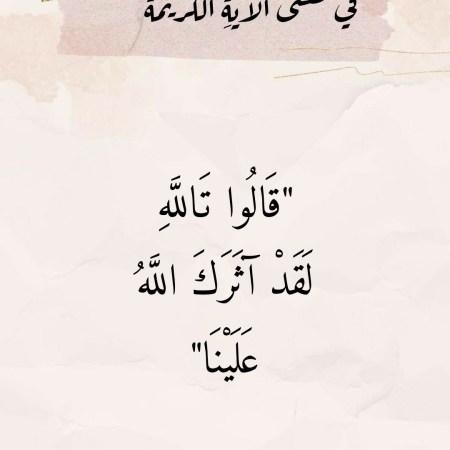 في معنى الآيةِ الكريمة
"قَالُوا تَاللَّهِ
لَقَدْ آثَرَكَ اللَّهُ
عَلَيْنَا"